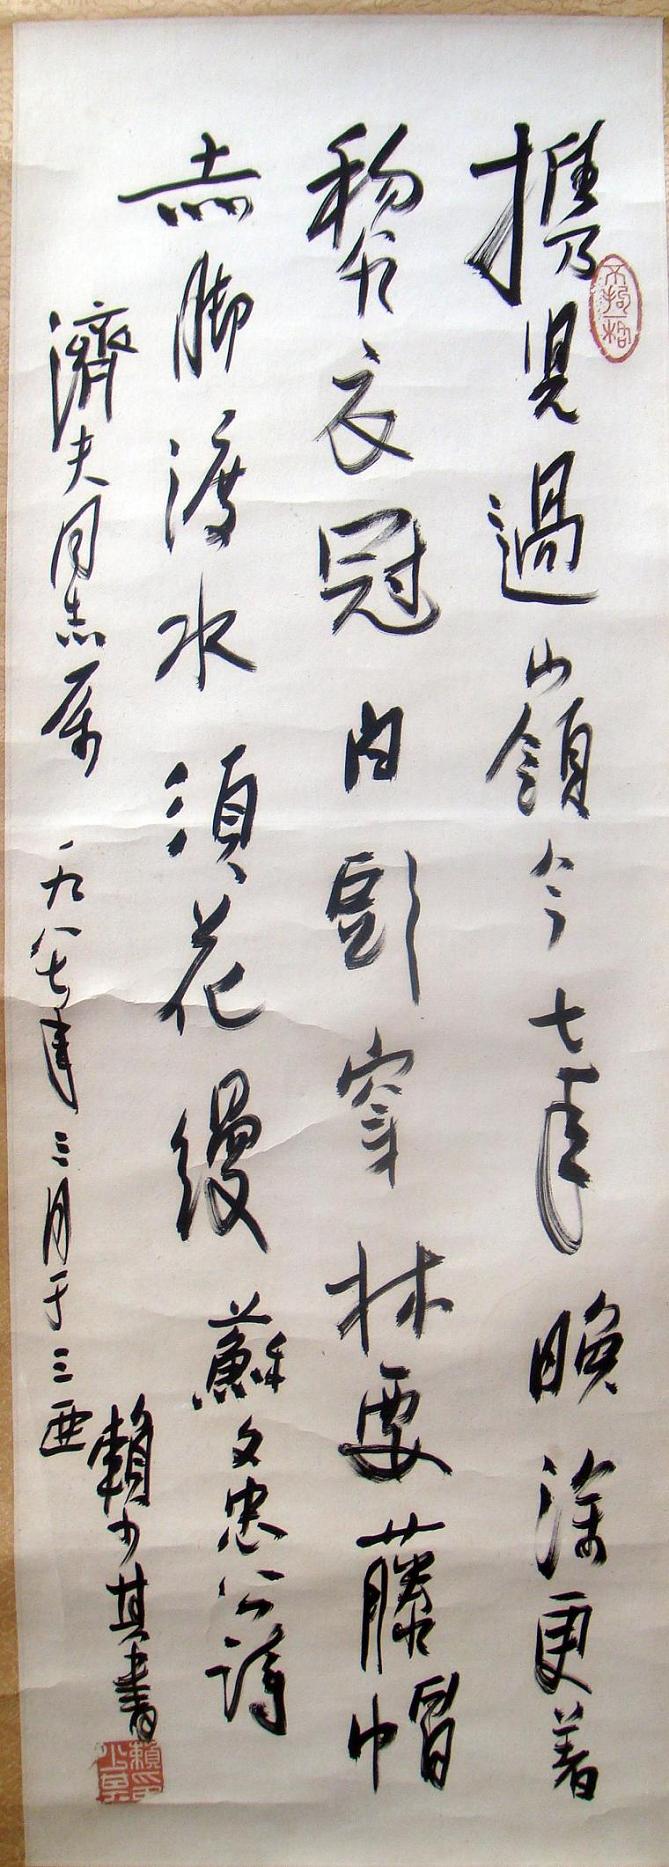 攜兒過嶺今七年晚塗更着
黎衣冠白頭穿林要藤帽
赤脚渡水須花縵 蘇文忠公詩
濟夫同志属 一九八七年三月于三亞
賴少其書
不拘一格